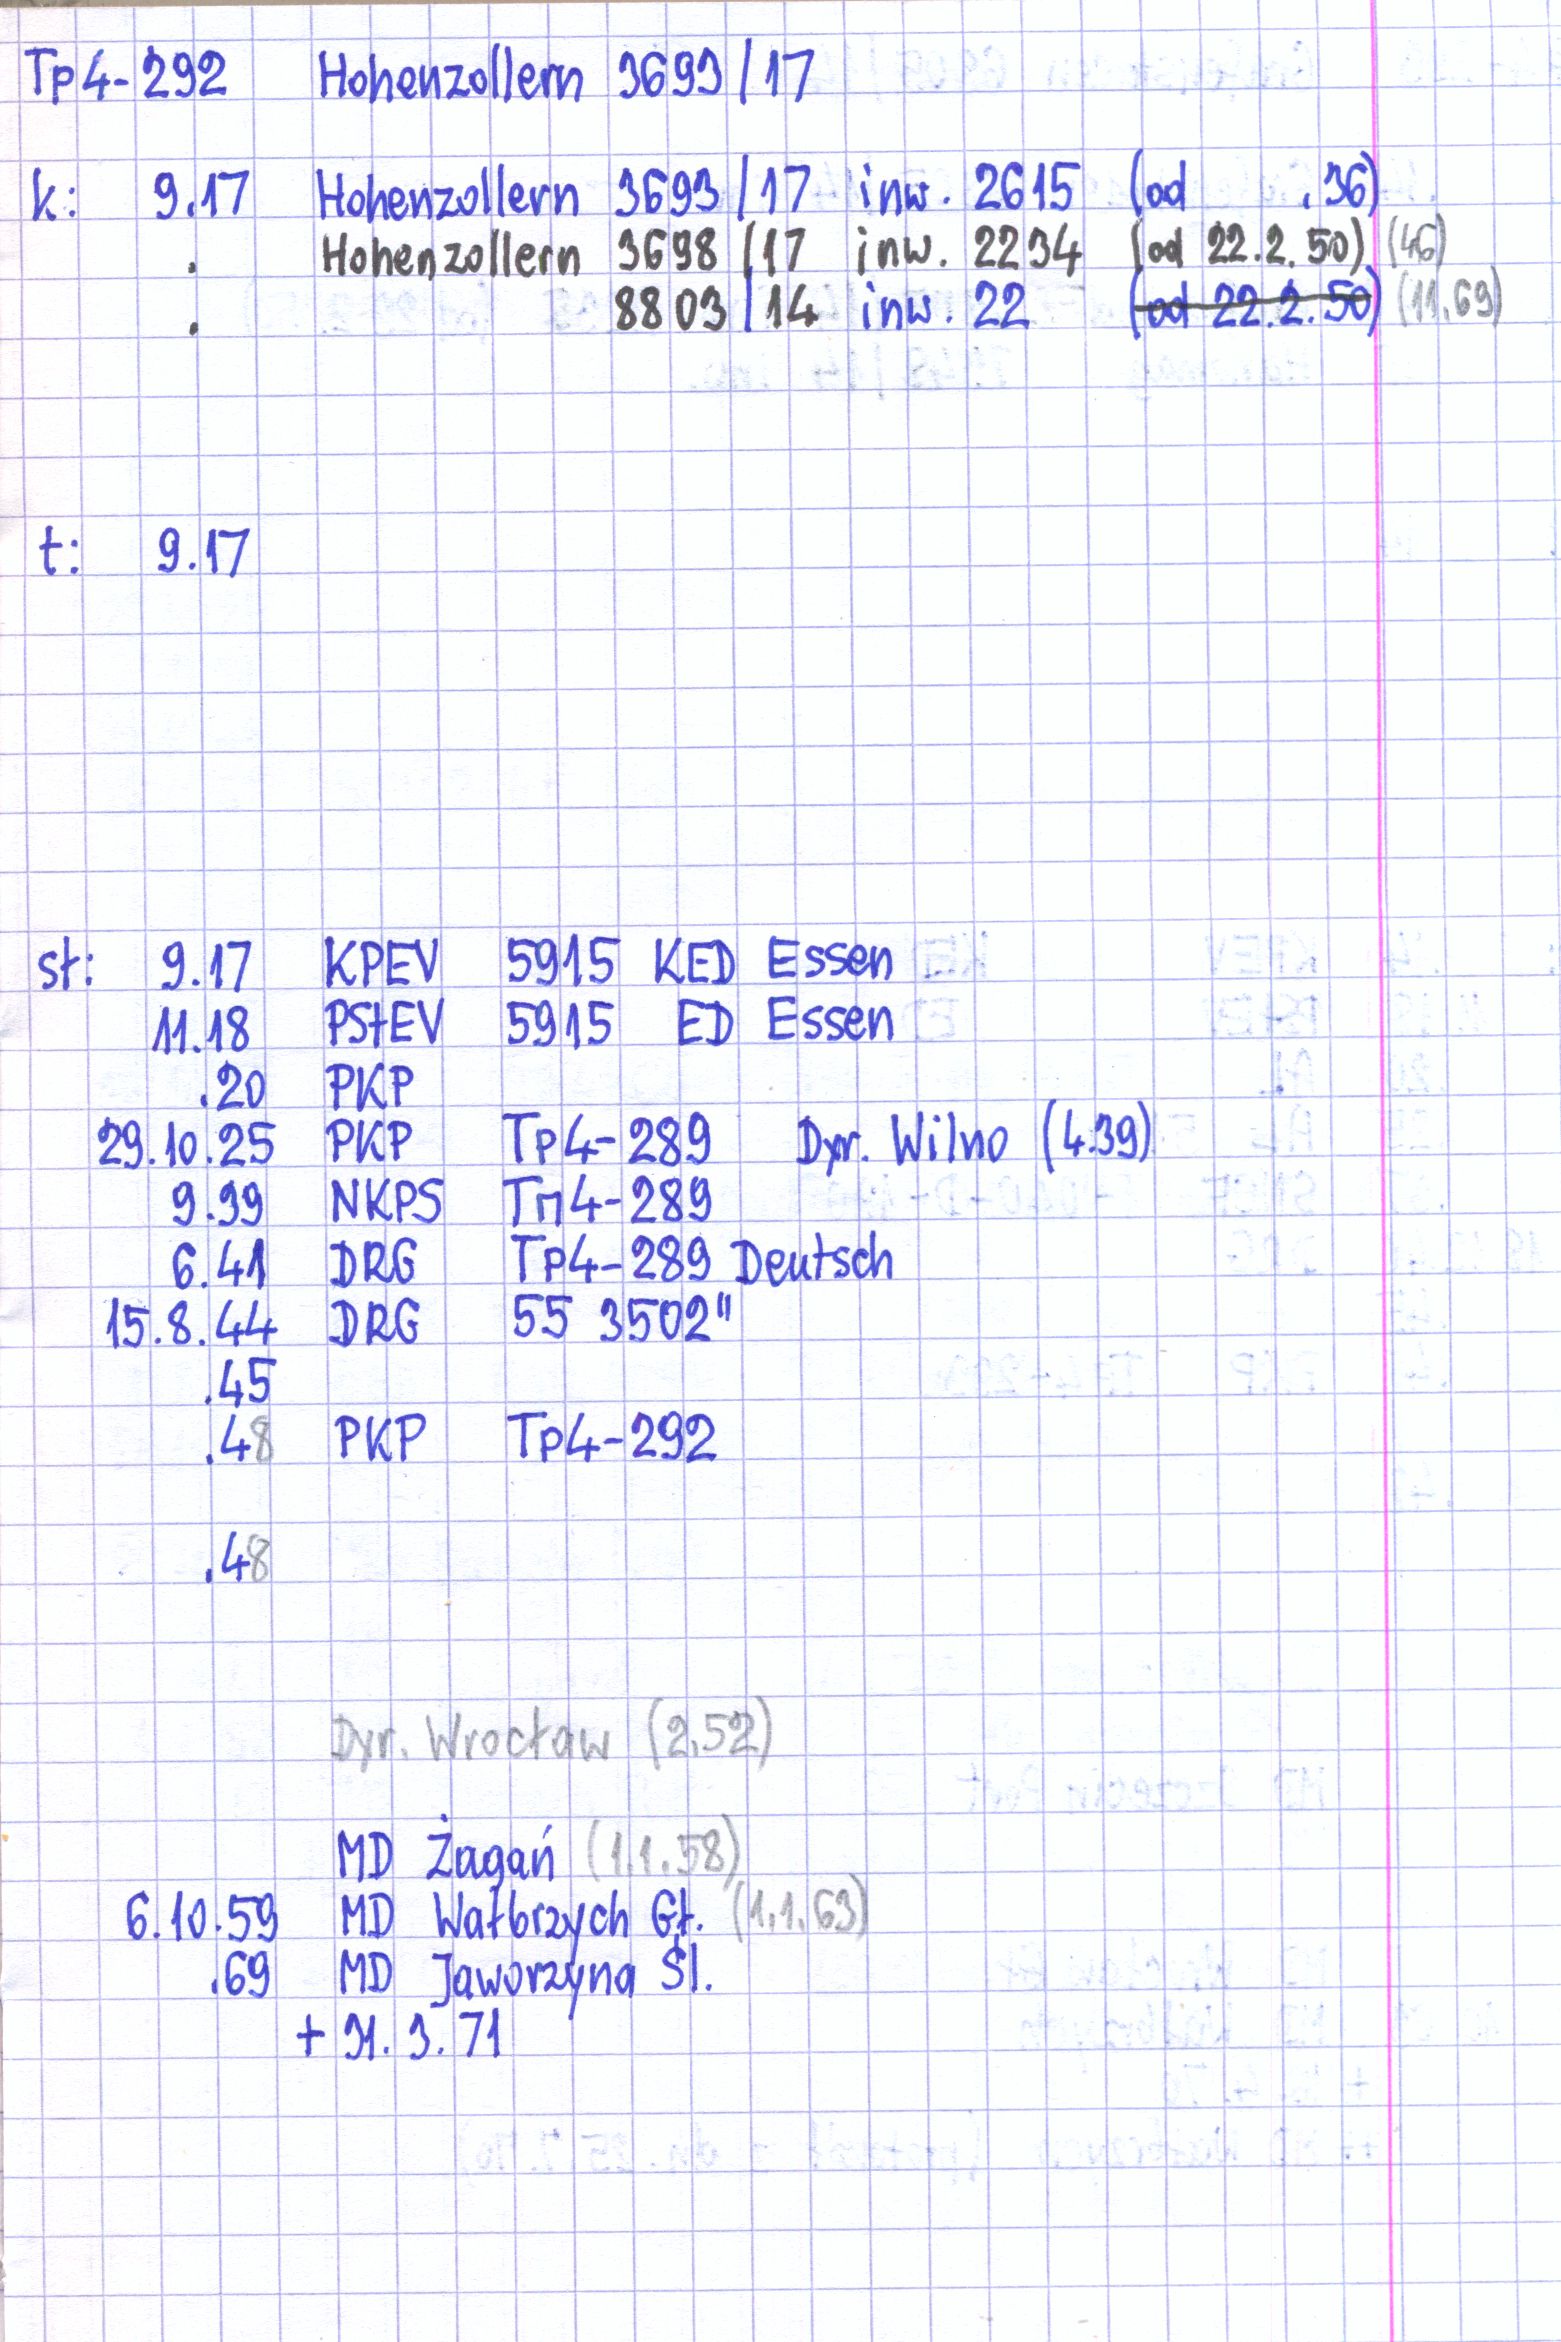 Tp4-292 Hohenzollern 3693/17
k: 9.17 Hohenzollern 3693/17 inw. 2615 (od .36)
. Hohenzollern 3698/17 inw. 2234 (od 22.2.50) (46)
. 8803/14 inw. 22 (od 22.2.50) (11.69)
t: 9.17
st: 9.17 KPEV 5915 KED Essen
11.18 PStEV 5915 ED Essen
.20 PKP
29.10.25 PKP Tp4-289 Dyr. Wilno (4.39)
9.39 NKPS Тп4-289
6.41 DRG Tp4-289 Deutsch
15.8.44 DRG 55 3502"
.45
.48 PKP Tp4-292
.48
Dyr. Wrocław (2.52)
MD Żagań (1.1.58)
6.10.59 MD Wałbrzych Gł. (1.1.63)
.69 MD Jaworzyna Śl.
+ 31.3.71